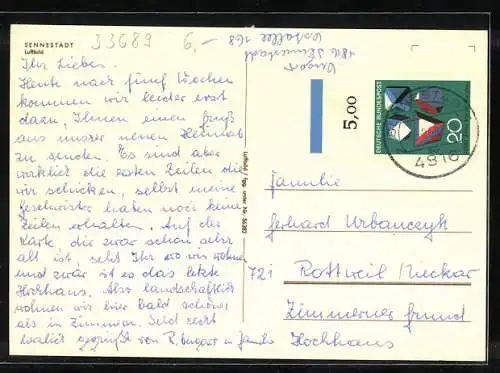 SENNESTADT
Luftbild
33689 6,-
4816 Sennestadt
Ihr Lieben.
Heute nach fünf Wochen
kommen wir leider erst
dazu, Ihnen einen Gruß
aus unsrer neuen Heimat
zu senden. Es sind aber
wirklich die ersten Zeilen die
wir schicken, selbst meine
Geschwister haben noch keine
Zeilen erhalten. Auf der
Karte, die zwar schon sehr
alt ist, seht Ihr wo wir wohnen
und zwar ist es das letzte
Hochhaus. Also landschaftlich
wohnen wir hier bald schöner
als in Zimmern. Seid recht
herzlich gegrüßt von R. Bugert u. Familie
Luftbild / Fpg. unter Nr. 56382
5,00
DEUTSCHE BUNDESPOST
20
4816
Familie
Gerhard Urbanczyk
721 Rottweil Neckar
Zimmerner Grund
Hochhaus